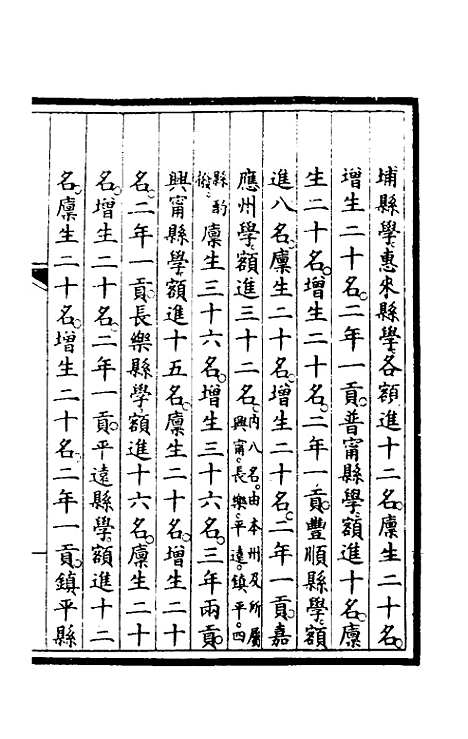 埔縣學惠來縣學各額進十二名。廩生二十名。
增生二十名。二年一貢。普甯縣學額進十名。廩
生二十名。增生二十名。二年一貢。豐順縣學額
進八名。廩生二十名。增生二十名。二年一貢。嘉
應州學額進三十二名。內八名。由本州及所屬興甯。長樂。平遠。鎮平。四
縣酌撥。廩生三十六名。增生三十六名。三年兩貢。
興甯縣學額進十五名。廩生二十名。增生二十
名。二年一貢。長樂縣學額進十六名。廩生二十
名。增生二十名。二年一貢。平遠縣學額進十二
名。廩生二十名。增生二十名。二年一貢。鎮平縣